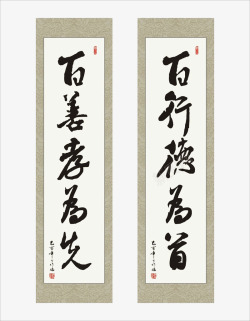 百行德為首
百善孝為先